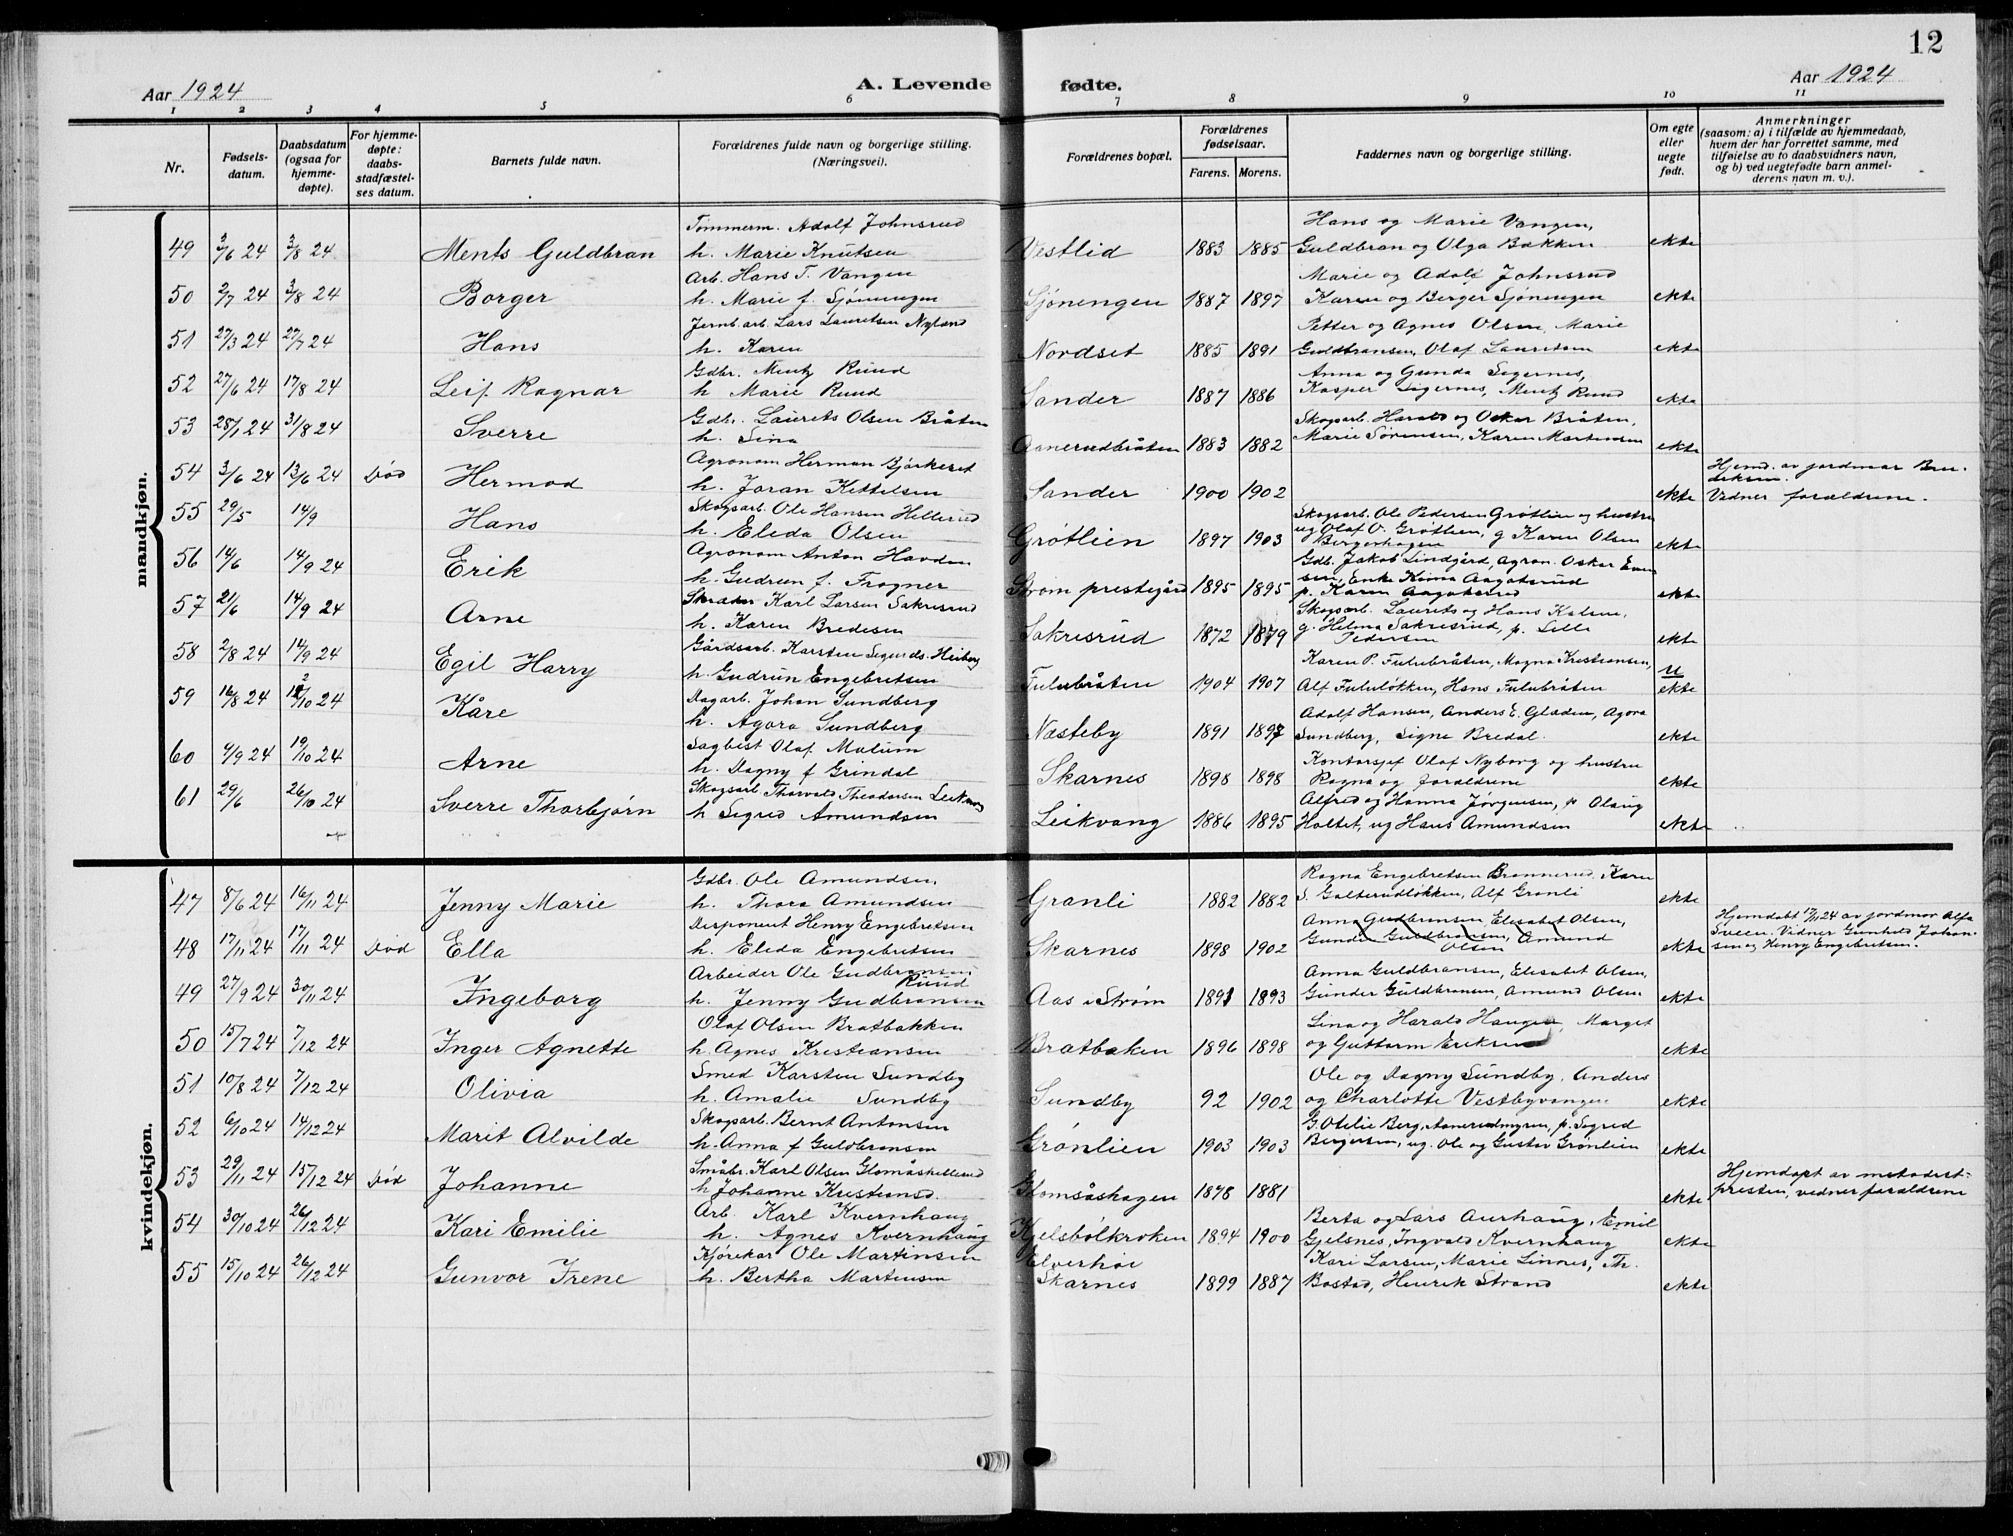 12
Aar 1924 A. Levende fødte. Aar 1924
1 2 3 4 5 6 7 8 9 10 11
Nr. Fødsels-datum. Daabsdatum (ogsaa for hjemme-døpte). For hjemme-døpte: daabs-stadfæstel-ses datum. Barnets fulde navn. Forældrenes fulde navn og borgerlige stilling. (Næringsvei). Forældrenes bopæl. Forældrenes fødselsaar. Farens. Morens. Faddernes navn og borgerlige stilling. Om egte eller uegte født. Anmerkninger (saasom: a) i tilfælde av hjemmedaab, hvem der har forrettet samme, med tilføielse av to daabsvidners navn, og b) ved uegtefødte barn anmel-derens navn m. v.).
mandkjøn.
Tømmerm. Adolf Johnsrud Hans og Marie Vangen,
49 3/6 24 3/8 24 Ments Guldbran h. Marie Knutsen Vestlid 1883 1885 Guldbran og Olga Bakken ekte
Arb. Hans T. Vangen Marie og Adolf Johnsrud
50 2/7 24 3/8 24 Borger h. Marie f. Sjøningen Sjøningen 1887 1897 Karen og Berger Sjøningen ekte
Jernb.arb. Lars Lauritsen Nyland Petter og Agnes Olsen, Marie
51 27/3 24 27/7 24 Hans h. Karen Nordset 1885 1891 Guldbransen, Olaf Lauritsen ekte
Gdbr. Mentz Ruud Anna og Gunda Sigernes,
52 27/6 24 17/8 24 Leif Ragnar h Marie Ruud Sander 1887 1886 Kasper Sigernes, Mentz Ruud ekte
Gdbr. Laurits Olsen Bråten Skogsarb. Harald og Oskar Bråten,
53 28/1 24 31/8 24 Sverre h. Lina Aanerudbråten 1883 1882 Marie Sørensen, Karen Martinsen ekte
Agronom Herman Bjørkeset Hjemd. av jordmor
54 3/6 24 13/6 24 Død Hermod h. Joran Kittelsen Sander 1900 1902 ekte Vidner forældrene.
Skogsarb. Ole Hansen Hellerud Skogsarb. Ole Pedersen Grøtlien og hustru
55 29/5 14/9 Hans h. Eleda Olsen Grøtlien 1897 1903 ug Olaf O. Grøtlien, g Karen Olsen Bergerhagen ekte
Agronom Anton Havden Gdb. Jakob Lindgård, Agron. Oskar
56 14/6 14/9 24 Erik h. Gudrun f. Frogner Strøm prestegård 1895 1895 p. Karen Aagotsrud ekte
Skræder Karl Larsen Sakresrud Skogsarb. Laurits og Hans
57 21/6 14/9 24 Arne h. Karen Bredesen Sakresrud 1872 1879 g. Helma Sakresrud, p. Lilli Pedersen ekte
Gårdsarb. Karsten Sigurds. Heiberg Karen P. Fulubråten, Magna Kristiansen,
58 2/8 24 14/9 24 Egil Harry h. Gudrun Engebretsen Fulubråten 1904 1907 Alf Fululøkken, Hans Fulubråten u ekte
Dagarb. Johan Sundberg Adolf Hansen, Anders E. Gladen, Agora
59 16/8 24 12/10 24 Kåre h. Agora Sundberg Næsteby 1891 1897 Sundberg, Signe Bredal. ekte
Sagbest. Olaf Malum Kontorsjef Olaf Nyborg og hustru
60 4/9 24 19/10 24 Arne h. Dagny f Grindal Skarnes 1898 1898 Ragna og forældrene ekte
Skogsarb. Thorvald Theodorsen Leikvang Alfred og Hanna Jørgensen, p Olaug
61 29/6 26/10 24 Sverre Thorbjørn h Sigrid Amundsen Leikvang 1886 1895 Holtet, ug Hans Amundsen ekte
kvindekjøn.
Gdbr. Ole Amundsen, Ragna Engebretsen Brannerud, Karen
47 8/6 24 16/11 24 Jenny Marie h. Thora Amundsen Granli 1882 1882 S. Galterudløkken, Alf Granli ekte
Disponent Henry Engebretsen Anna Gudbransen, Elisabet Olsen, Hjemdøbt 17/11 24 av jordmor Alfa
48 17/11 24 17/11 24 Død Ella h. Eleda Engebretsen Skarnes 1898 1902 Gunder Guldbransen, Amund Olsen ekte Sveen. Vidner Gunhild Johansen og Henry Engebretsen.
Arbeider Ole Gudbransen Ruud Anna Guldbransen, Elisabet Olsen,
49 27/9 24 30/11 24 Ingeborg h. Jenny Gudbransen Aas i Strøm 1891 1893 Gunder Guldbransen, Amund Olsen ekte
Olaf Olsen Bratbakken Lina og Harald Haugen, Marget
50 15/7 24 7/12 24 Inger Agnette h. Agnes Kristiansen Bratbaken 1896 1898 og Guttorm Eriksen ekte
Smed Karsten Sundby Ole og Dagny Sundby, Anders
51 10/8 24 7/12 24 Olivia h. Amalie Sundby Sundby 92 1902 og Charlotte Vestbyvangen ekte
Skogsarb. Bernt Antonsen G. Otilie Berg, Aanerudmyren, p. Sigrid
52 6/10 24 14/12 24 Marit Alvilde h. Anna f Guldbransen Grønlien 1903 1903 Bergersen, ug. Ole og Gustav Grønlien ekte
Småbr. Karl Olsen Glomåskellerud Hjemdøpt av metodist-
53 29/11 24 15/12 24 Død Johanne h Johanne Kristiansd. Glomsåshagen 1878 1881 ekte presten, vidner forældrene
Arb. Karl Kvernhaug Berta og Lars Aurhaug, Emil
54 30/10 24 26/12 24 Kari Emilie h. Agnes Kvernhaug Kjelsbølkroken 1894 1900 Gjelsnes, Ingvald Kvernhaug ekte
Kjørekar Ole Martinsen Elverhøi Kari Larsen, Marie Linnes, Th.
55 15/10 24 26/12 24 Gunvor Irene h. Bertha Martinsen Skarnes 1899 1887 Bostad, Henrik Strand ekte